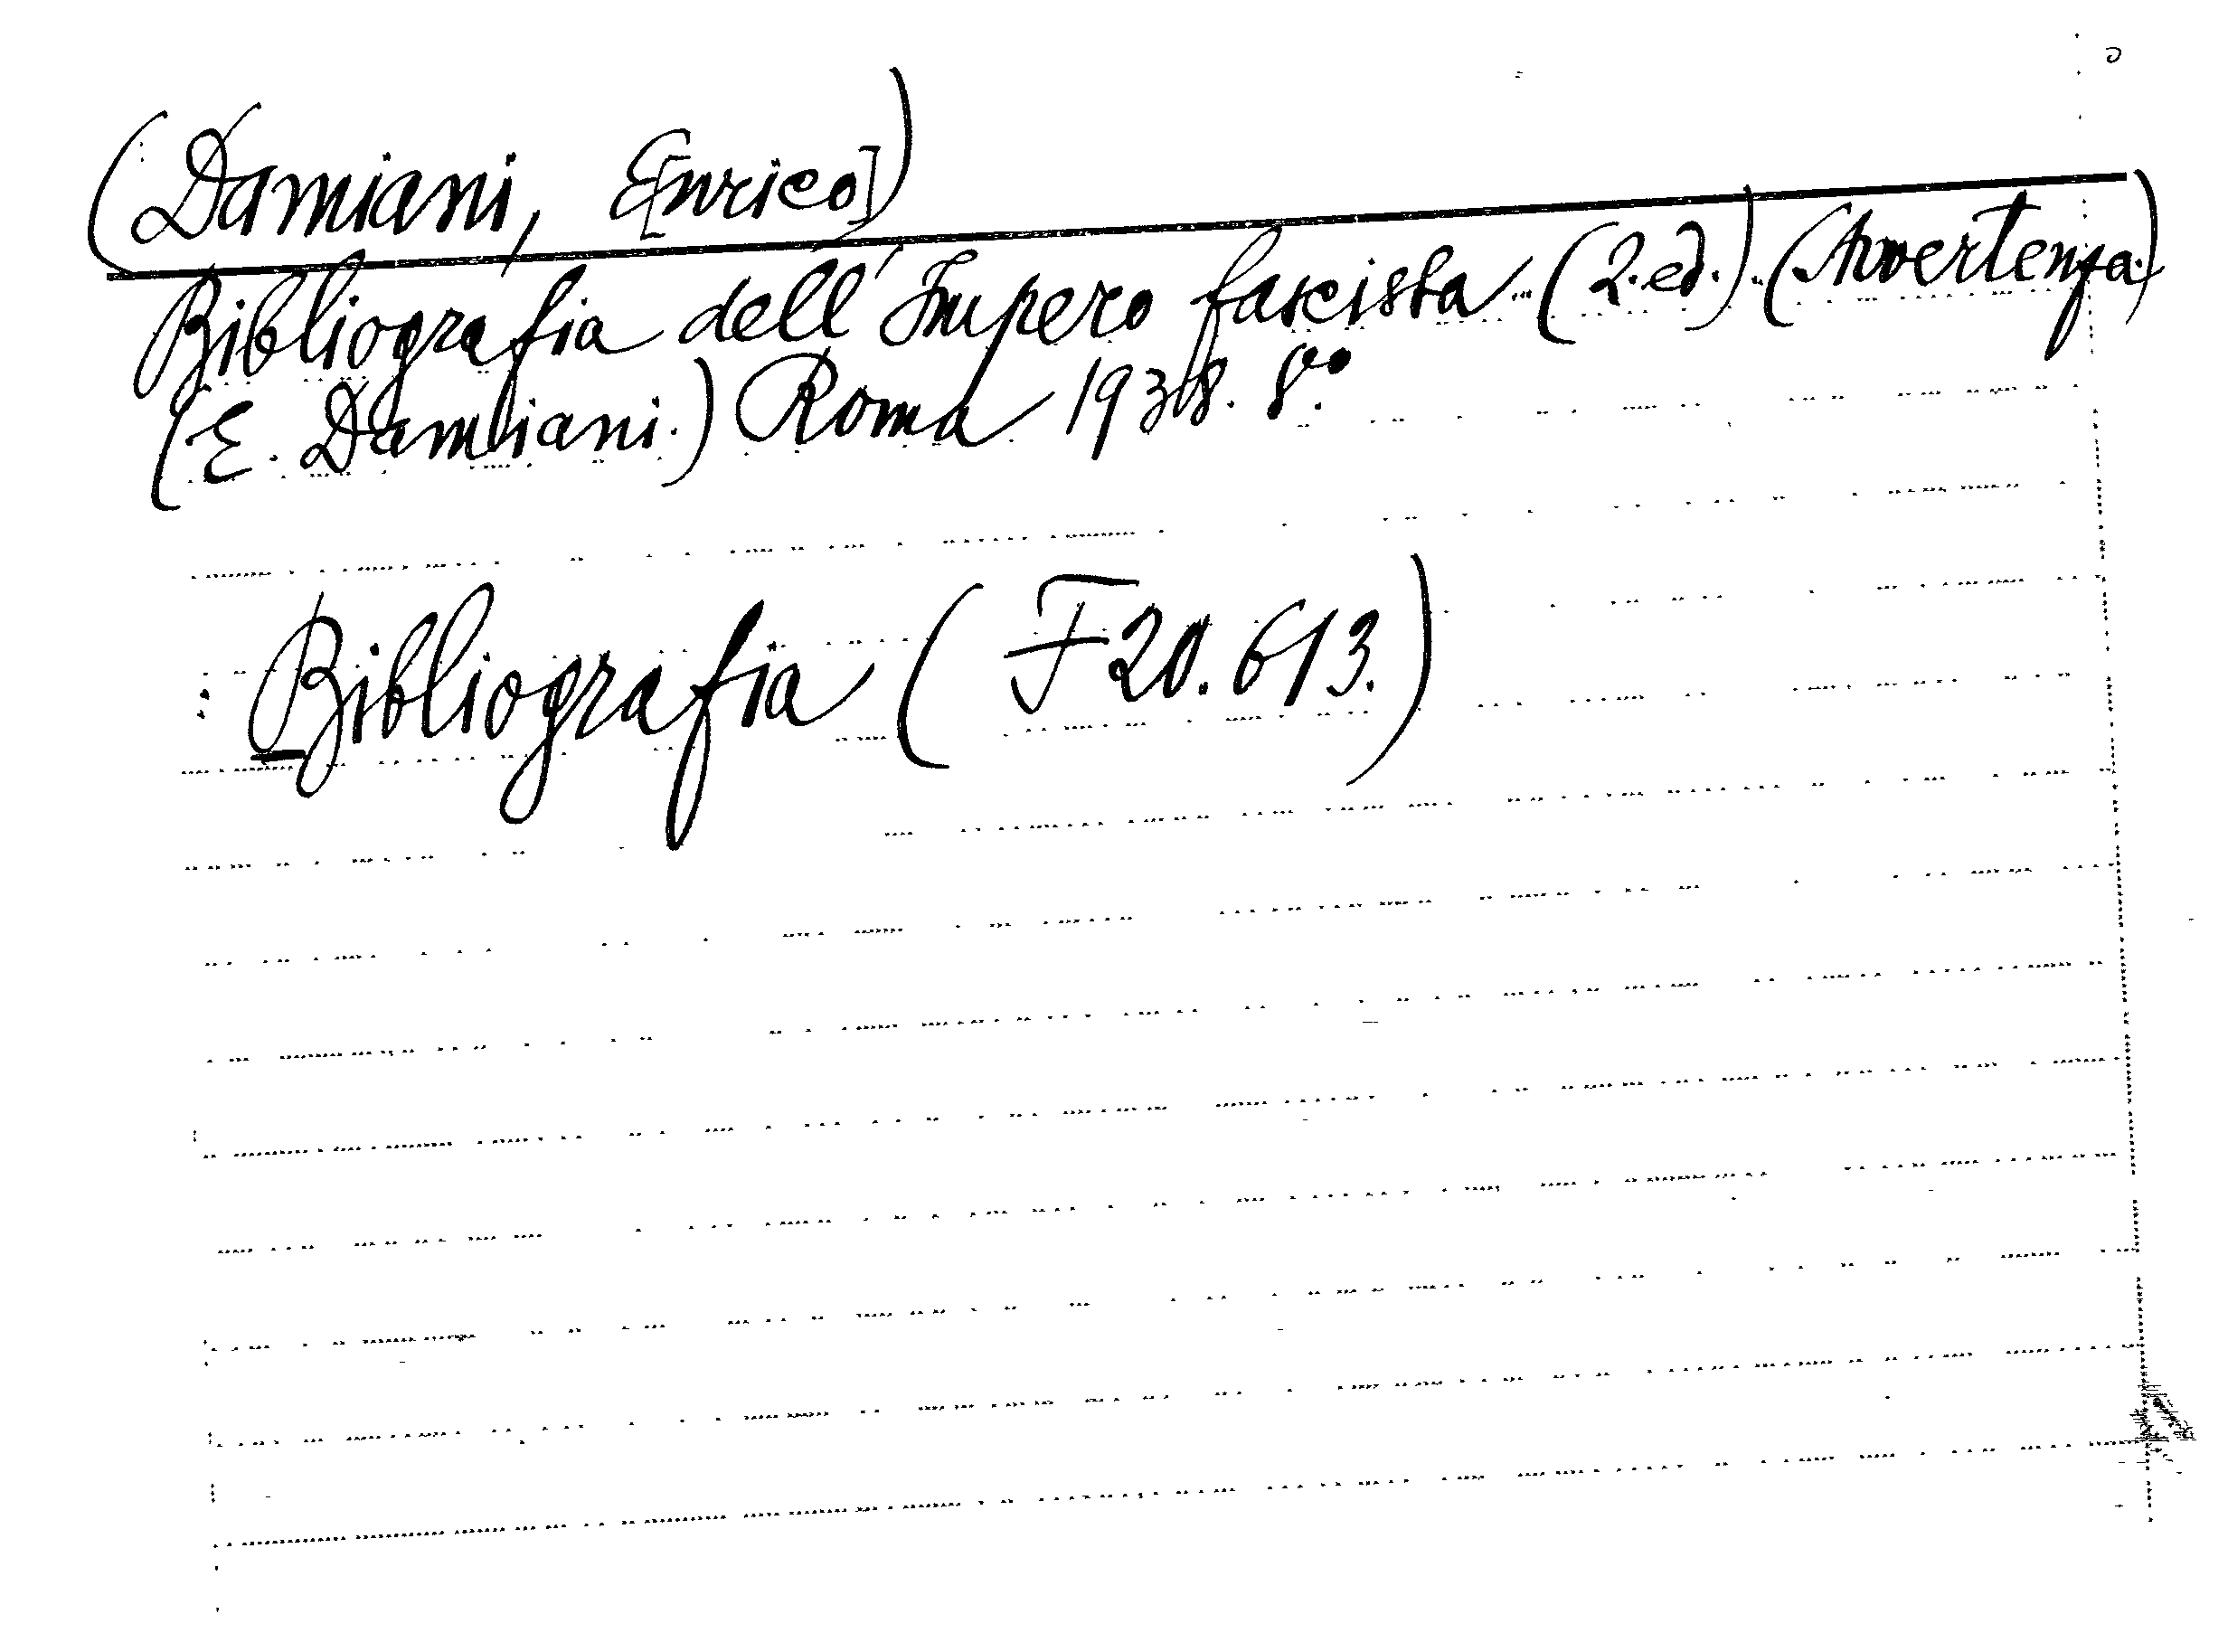 (Damiani, E[nrico])
Bibliografia dell'Impero fascista... (2. ed.). (Avvertenza.)
(E. Damiani.) Roma 1938. 8º.
Bibliografia (F 20.613.)